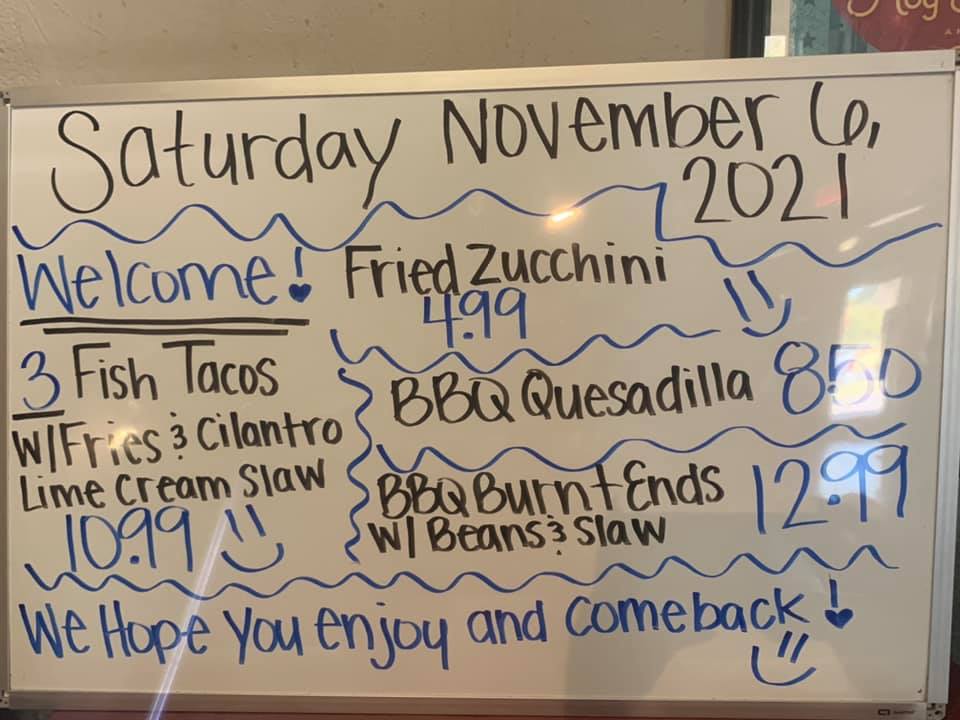 Saturday November 6,
2021
Welcome!
Fried Zucchini
4.99
3 Fish Tacos
W/Fries & Cilantro
Lime Cream Slaw
10.99
BBQ Quesadilla 8.50
BBQ Burnt Ends 12.99
W/ Beans & Slaw
We Hope You enjoy and comeback!